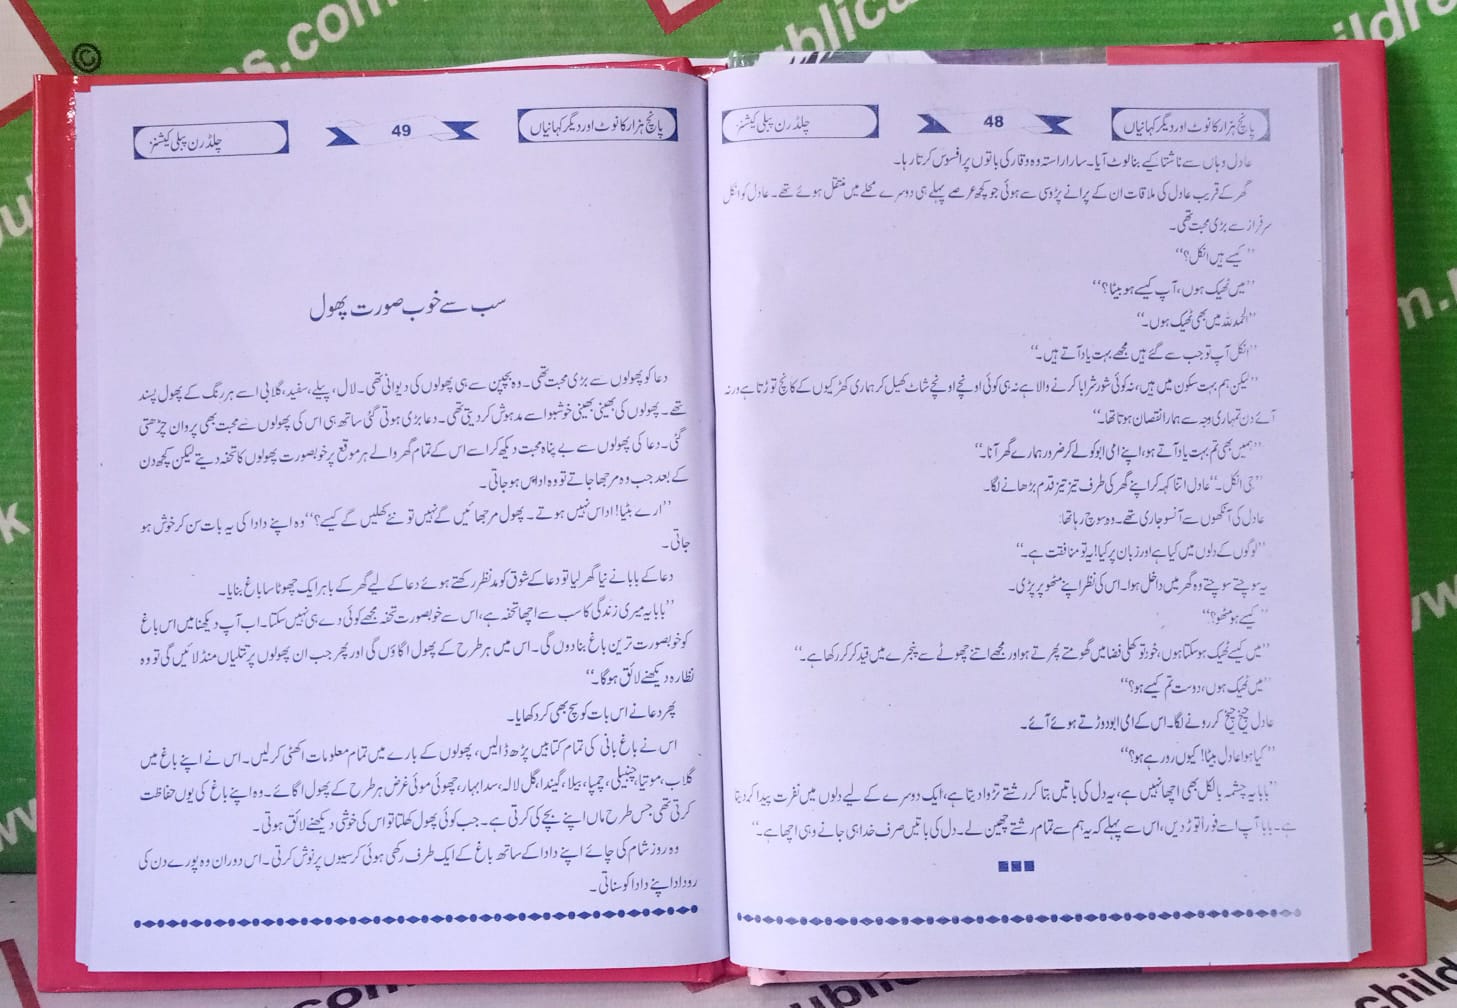 پانچ ہزار کا نوٹ اور دیگر کہانیاں
48
چلڈرن پبلی کیشنز
عادل وہاں سے ناشتا کیے بنا لوٹ آیا۔ سارا راستہ وہ وقار کی باتوں پر افسوس کرتا رہا۔
گھر کے قریب عادل کی ملاقات ان کے پرانے پڑوسی سے ہوئی جو کچھ عرصے پہلے ہی دوسرے محلے میں منتقل ہوئے تھے۔ عادل کو انکل
سرفراز سے بڑی محبت تھی۔
’’کیسے ہیں انکل؟‘‘
’’میں ٹھیک ہوں، آپ کیسے ہو بیٹا؟‘‘
’’الحمدللہ میں بھی ٹھیک ہوں۔‘‘
’’انکل آپ تو جب سے گئے ہیں مجھے بہت یاد آتے ہیں۔‘‘
’’لیکن ہم بہت سکون میں ہیں، نہ کوئی شور شرابا کرنے والا ہے نہ ہی کوئی اونچے اونچے شاٹ کھیل کر ہماری کھڑکیوں کے کانچ توڑتا ہے ورنہ
آئے دن تمہاری وجہ سے ہمارا نقصان ہوتا تھا۔‘‘
’’ہمیں بھی تم بہت یاد آتے ہو، اپنے امی ابو کو لے کر ضرور ہمارے گھر آنا۔‘‘
’’جی انکل۔‘‘ عادل اتنا کہہ کر اپنے گھر کی طرف تیز تیز قدم بڑھانے لگا۔
عادل کی آنکھوں سے آنسو جاری تھے۔ وہ سوچ رہا تھا:
’’لوگوں کے دلوں میں کیا ہے اور زبان پر کیا! یہ تو منافقت ہے۔‘‘
یہ سوچتے سوچتے وہ گھر میں داخل ہوا۔ اس کی نظر اپنے مٹھو پر پڑی۔
’’کیسے ہو مٹھو؟‘‘
’’میں کیسے ٹھیک ہو سکتا ہوں، خود تو کھلی فضا میں گھومتے پھرتے ہو اور مجھے اتنے چھوٹے سے پنجرے میں قید کر کر رکھا ہے۔‘‘
’’میں ٹھیک ہوں، دوست تم کیسے ہو؟‘‘
عادل چیخ چیخ کر رونے لگا۔ اس کے امی ابو دوڑتے ہوئے آئے۔
’’کیا ہوا عادل بیٹا! کیوں رو رہے ہو؟‘‘
’’بابا یہ چشمہ بالکل بھی اچھا نہیں ہے، یہ دل کی باتیں بتا کر رشتے تڑوا دیتا ہے، ایک دوسرے کے لیے دلوں میں نفرت پیدا کر دیتا
ہے۔ بابا آپ اسے فوراً توڑ دیں، اس سے پہلے کہ یہ ہم سے تمام رشتے چھین لے۔ دل کی باتیں صرف خدا ہی جانے وہی اچھا ہے۔‘‘
پانچ ہزار کا نوٹ اور دیگر کہانیاں
49
چلڈرن پبلی کیشنز
سب سے خوب صورت پھول
دعا کو پھولوں سے بڑی محبت تھی۔ وہ بچپن سے ہی پھولوں کی دیوانی تھی۔ لال، پیلے، سفید، گلابی اسے ہر رنگ کے پھول پسند
تھے۔ پھولوں کی بھینی بھینی خوشبو اسے مدہوش کر دیتی تھی۔ دعا بڑی ہوتی گئی ساتھ ہی اس کی پھولوں سے محبت بھی پروان چڑھتی
گئی۔ دعا کی پھولوں سے بے پناہ محبت دیکھ کر اسے اس کے تمام گھر والے ہر موقع پر خوبصورت پھولوں کا تحفہ دیتے لیکن کچھ دن
کے بعد جب وہ مرجھا جاتے تو وہ اداس ہو جاتی۔
’’ارے بٹیا! اداس نہیں ہوتے۔ پھول مرجھائیں گے نہیں تو نئے کھلیں گے کیسے؟‘‘ وہ اپنے دادا کی یہ بات سن کر خوش ہو
جاتی۔
دعا کے بابا نے نیا گھر لیا تو دعا کے شوق کو مدنظر رکھتے ہوئے دعا کے لیے گھر کے باہر ایک چھوٹا سا باغ بنایا۔
’’بابا یہ میری زندگی کا سب سے اچھا تحفہ ہے، اس سے خوبصورت تحفہ مجھے کوئی دے ہی نہیں سکتا۔ اب آپ دیکھنا میں اس باغ
کو خوبصورت ترین باغ بنا دوں گی۔ اس میں ہر طرح کے پھول اگاؤں گی اور پھر جب ان پھولوں پر تتلیاں منڈلائیں گی تو وہ
نظارہ دیکھنے لائق ہوگا۔‘‘
پھر دعا نے اس بات کو سچ بھی کر دکھایا۔
اس نے باغ بانی کی تمام کتابیں پڑھ ڈالیں، پھولوں کے بارے میں تمام معلومات اکٹھی کر لیں۔ اس نے اپنے باغ میں
گلاب، موتیا، چنبیلی، چمپا، بیلا، گیندا، گل لالہ، سدا بہار، چھوئی موئی غرض ہر طرح کے پھول اگائے۔ وہ اپنے باغ کی یوں حفاظت
کرتی تھی جس طرح ماں اپنے بچے کی کرتی ہے۔ جب کوئی پھول کھلتا تو اس کی خوشی دیکھنے لائق ہوتی۔
وہ روز شام کی چائے اپنے دادا کے ساتھ باغ کے ایک طرف رکھی ہوئی کرسیوں پر نوش کرتی۔ اس دوران وہ پورے دن کی
روداد اپنے دادا کو سناتی۔